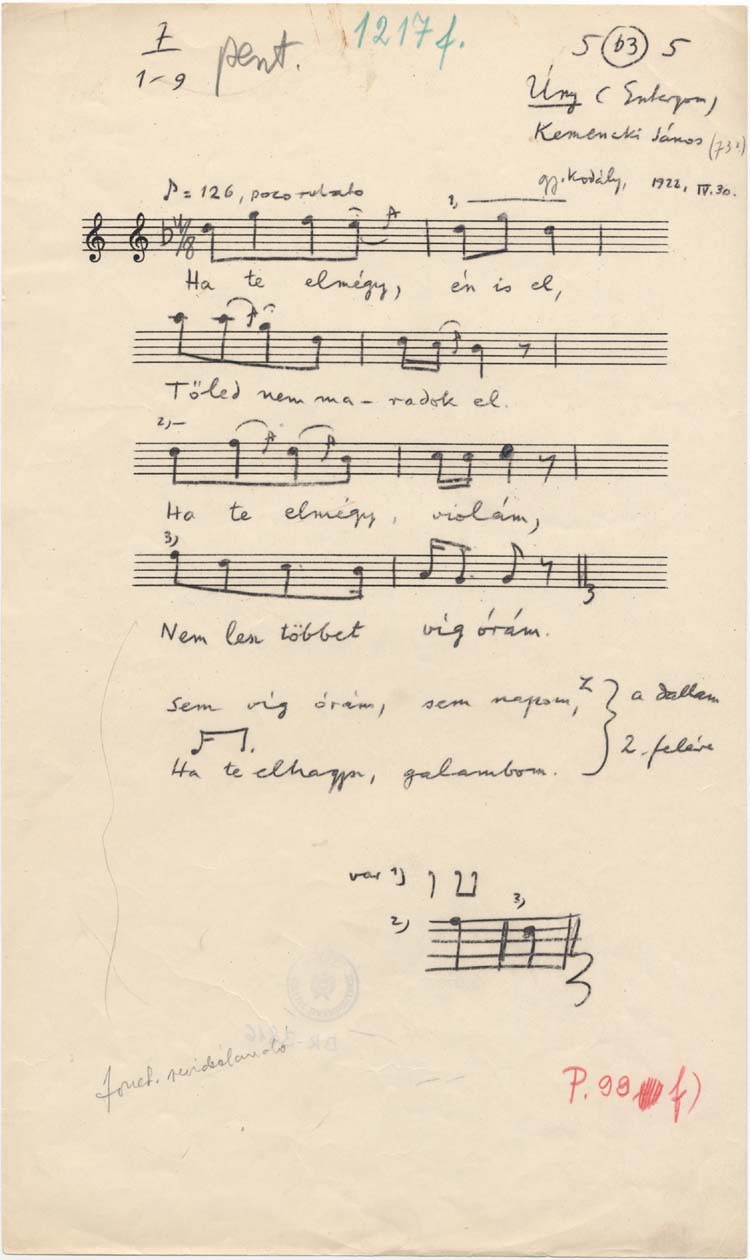 7
1-9
pent.
1217 f.
5 (b3) 5
Úny (Esztergom)
Kemencki János (73 é)
gy. Kodály, 1922, IV. 30.
♪ = 126, poco rubato
1,
4/8
Ha te elmégy, én is el,
Tőled nem ma- radok el.
2,-
Ha te elmégy, violám,
3)
Nem lesz többet víg órám.
Sem víg órám, sem napom, } a dallam
Ha te elhagysz, galambom. } 2. felére
var 1)
2) 3)
Fonet. revideálandó
P. 99 f)